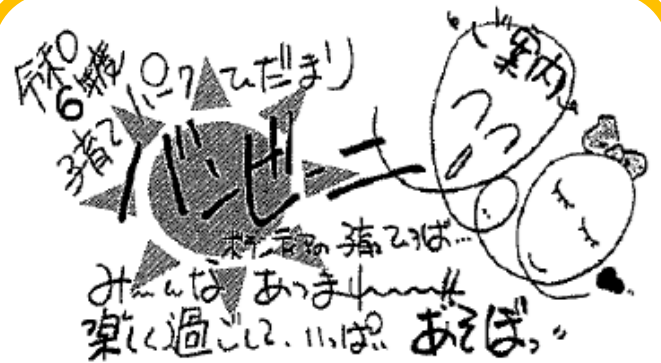 令和
6年度
子育てパークひだまり
ご案内
バンビーニ
ボランティアの子育てひろば…
み〜んな あつまれ〜〜!!
楽しく過ごして、いっぱい あそぼっ